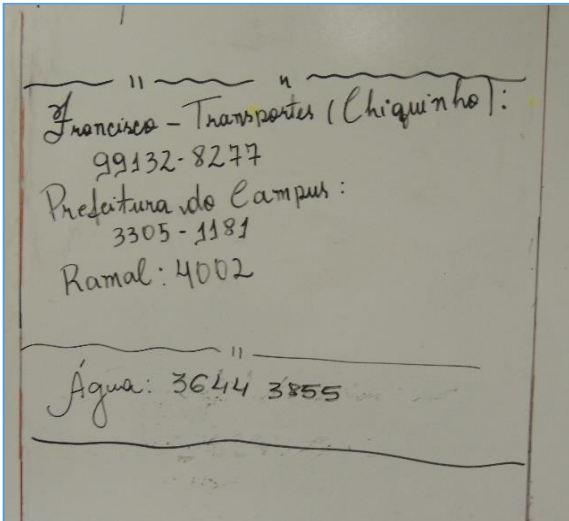 Francisco - Transportes (Chiquinho):
99132-8277
Prefeitura do Campus:
3305-1181
Ramal: 4002
Água: 3644 3855